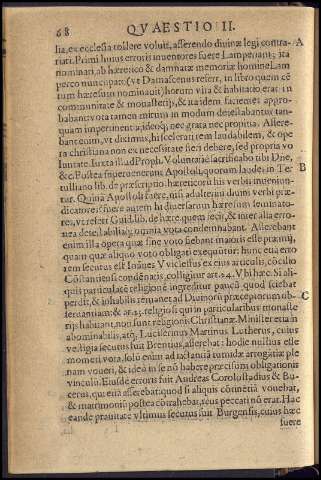 68 QVAESTIO II.
lia, ex ecclesia tollere voluit, asserendo divinæ legi contra- A
riari. Primi huius erroris inventores fuere Lampetiani; ita
nominati, ab hæretico & damnatæ memoriæ homine Lam
petio nuncupato, (vt Damascenus refert, in libro quem cé
tum hæresum nominavit) horum vita & habitatio erat in
communitate & monasterijs, & ita idem facientes appro-
babant: vota tamen mitum in modum detestabantur tan-
quam impertinentia; ideoq́; nec grata nec propitia. Assere-
bant enim, vt diximus, hi scelerati rem laudabilem, & ope
ra christiana non ex necessitate fieri debere, sed propria vo
luntate. Iuxta illud Proph. Voluntariè sacrificabo tibi Dñe,
&c. Postea supervenerunt Apostoli, quorum laudes in Ter B
tulliano lib. de præscriptio. hæreticorũ his verbis inveniun-
tur. Quina Apostoli
dicatores: fuere autem hi diversarum hæresum seminato-
res, vt refert Guid. lib. de hære. quem iecit, & inter alia erro-
nea detestabilia, omnia vota condemnabant. Asserebant
enim illa opera quæ sine voto fiebant maioris esse præmij,
quam quæ aliquo voto obligati exequûtur: hunc etiã erro
rem secutus est Ioãnes Vvicleffus ex cuius articulis, cõcilio
Cõstantiensi condênatis, colligitur art. 24. Vbi hæc. Si ali-
quis particularé religionê ingreditur pancũ quod sciebat
perdit, & inhabilis servanet ad Divinorũ præceptorum ob- C
servantiam: & ar. 23. religiosi qui in particularibus monaste
rijs habitant, non sunt religionis Christianæ. Minister etiã in
abominabilis, atq́; Luciferinus Martinus Lutherus, cuius
vestigia secutus fuit Brentius, asserebat: hodie nullus esse
momenti vota, solũ enim ad iactantiã tumidæ arrogãtiæ ple
nam voueri, & ideò in se nõ habere precisum obligationis
vinculũ. Eiusdé erroris fuit Andreas Corolostadius & Bu-
cerus, qui etiã asserebãt quod si aliquis cõtinêtiã vovebat,
& matrimoniũ postea cõtrahebat, reus peccati nõ erat. Hac
eande pravitate vltimus secutus fuit Burgensis, cuius hæc
fuere